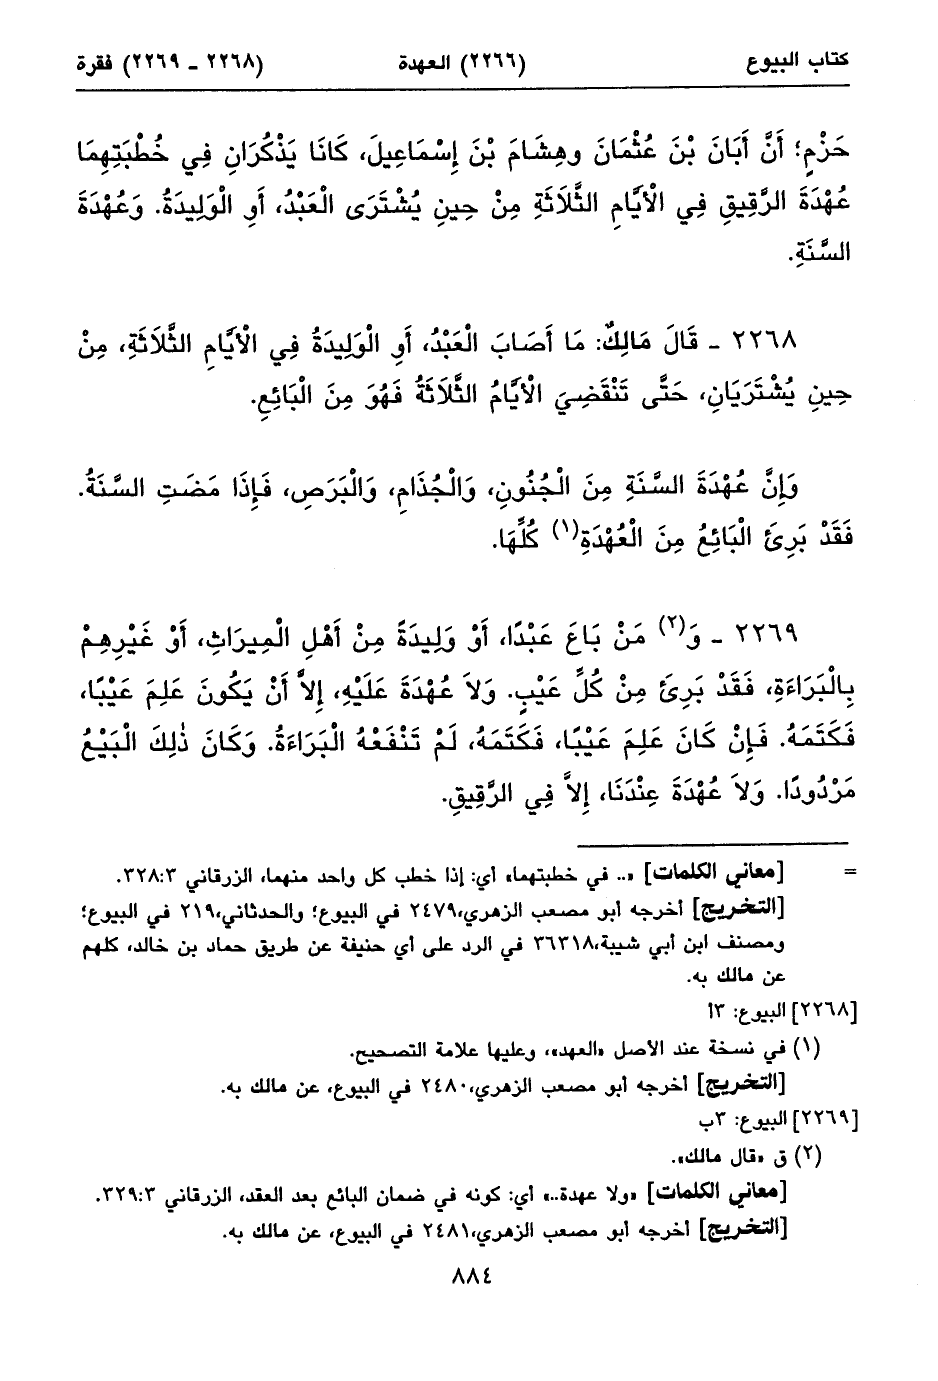 كتاب البيوع (٢٢٦٦) العهدة (٢٢٦٨ ـ ٢٢٦٩) فقرة
حَزْمٍ؛ أَنَّ أَبَانَ بْنَ عُثْمَانَ وهِشَامَ بْنَ إِسْمَاعِيلَ، كَانَا يَذْكُرَانِ فِي خُطْبَتِهِمَا
عُهْدَةَ الرَّقِيقِ فِي الْأَيَّامِ الثَّلَاثَةِ مِنْ حِينِ يُشْتَرَى الْعَبْدُ، أَوِ الْوَلِيدَةُ. وَعُهْدَةَ
السَّنَةِ.
٢٢٦٨ ـ قَالَ مَالِكٌ: مَا أَصَابَ الْعَبْدُ، أَوِ الْوَلِيدَةُ فِي الْأَيَّامِ الثَّلَاثَةِ، مِنْ
حِينِ يُشْتَرَيَانِ، حَتَّى تَنْقَضِيَ الْأَيَّامُ الثَّلَاثَةُ فَهُوَ مِنَ الْبَائِعِ.
وَإِنَّ عُهْدَةَ السَّنَةِ مِنَ الْجُنُونِ، وَالْجُذَامِ، وَالْبَرَصِ، فَإِذَا مَضَتِ السَّنَةُ.
فَقَدْ بَرِئَ الْبَائِعُ مِنَ الْعُهْدَةِ(١) كُلِّهَا.
٢٢٦٩ ـ وَ(٢) مَنْ بَاعَ عَبْدًا، أَوْ وَلِيدَةً مِنْ أَهْلِ الْمِيرَاثِ، أَوْ غَيْرِهِمْ
بِالْبَرَاءَةِ، فَقَدْ بَرِئَ مِنْ كُلِّ عَيْبٍ. وَلاَ عُهْدَةَ عَلَيْهِ، إِلاَّ أَنْ يَكُونَ عَلِمَ عَيْبًا،
فَكَتَمَهُ. فَإِنْ كَانَ عَلِمَ عَيْبًا، فَكَتَمَهُ، لَمْ تَنْفَعْهُ الْبَرَاءَةُ. وَكَانَ ذٰلِكَ الْبَيْعُ
مَرْدُودًا. وَلاَ عُهْدَةَ عِنْدَنَا، إِلاَّ فِي الرَّقِيقِ.
= [معاني الكلمات] «.. في خطبتهما» أي: إذا خطب كل واحد منهما، الزرقاني ٣٢٨:٣.
[التخريج] أخرجه أبو مصعب الزهري،٢٤٧٩ في البيوع؛ والحدثاني،٢١٩ في البيوع؛
ومصنف ابن أبي شيبة،٣٦٣١٨ في الرد على أي حنيفة عن طريق حماد بن خالد، كلهم
عن مالك به.
[٢٢٦٨] البيوع: ٣أ
(١) في نسخة عند الأصل «العهد»، وعليها علامة التصحيح.
[التخريج] أخرجه أبو مصعب الزهري،٢٤٨٠ في البيوع، عن مالك به.
[٢٢٦٩] البيوع: ٣ب
(٢) ق «قال مالك».
[معاني الكلمات] «ولا عهدة..» أي: كونه في ضمان البائع بعد العقد، الزرقاني ٣٢٩:٣.
[التخريج] أخرجه أبو مصعب الزهري،٢٤٨١ في البيوع، عن مالك به.
٨٨٤